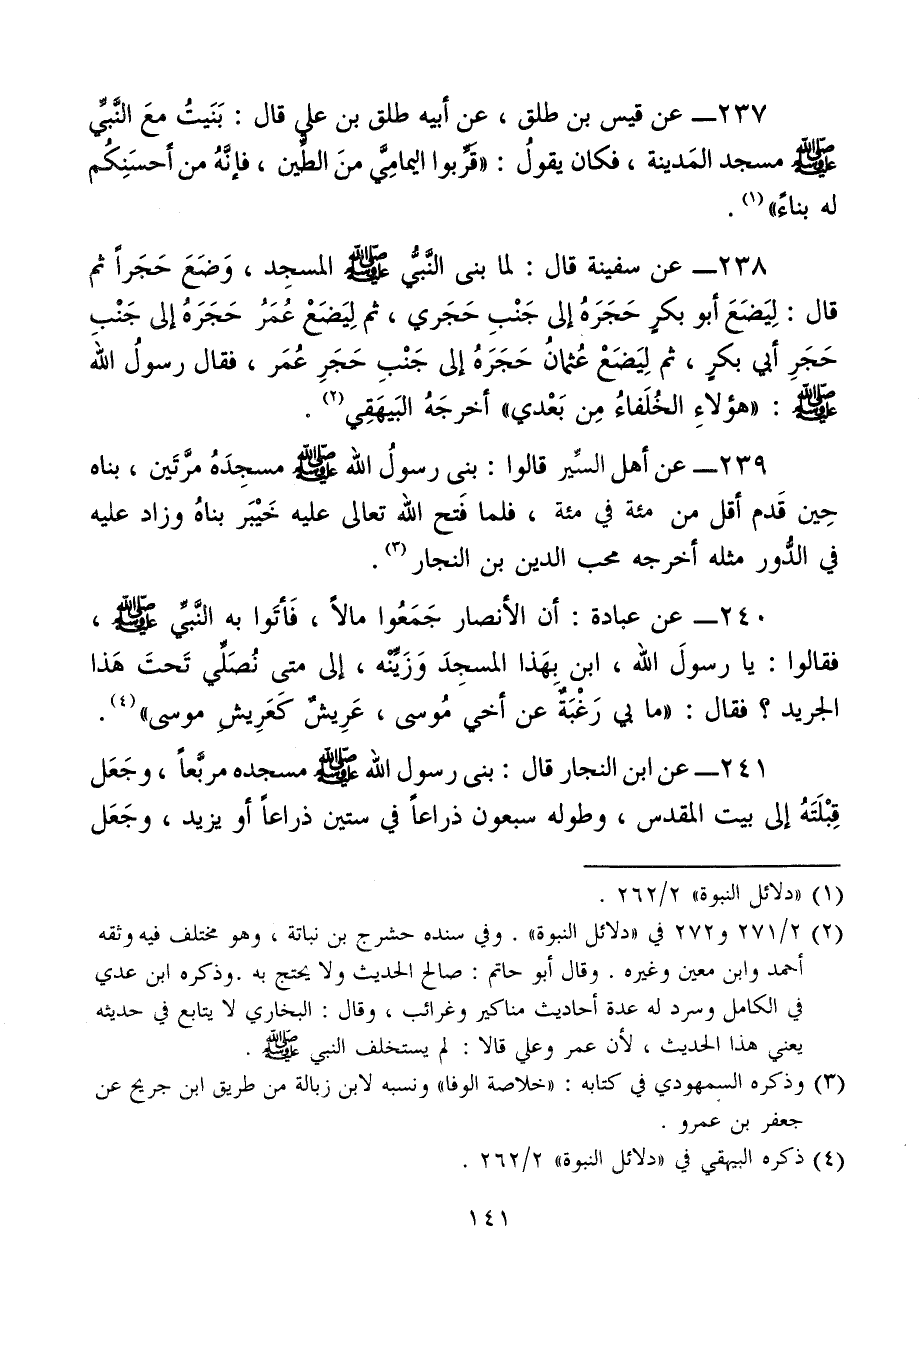 ٢٣٧ــ عن قيس بن طلق ، عن أبيه طلق بن علي قال : بَنَيتُ معَ النَّبيِّ
ﷺ مسجد المَدينة ، فكان يقولُ : «قَرِّبوا اليمامِيَّ منَ الطِّين ، فإنَّهُ من أحسَنِكُم
له بناءً»(١) .
٢٣٨ــ عن سفينة قال : لما بنى النَّبيُّ ﷺ المسجِد ، وَضَعَ حَجَراً ثم
قال : لِيَضَعَ أبو بكرٍ حَجَرَهُ إلى جَنْبِ حَجَري ، ثم لِيَضَعْ عُمَرُ حَجَرَهُ إلى جَنْبِ
حَجَرِ أبي بكرٍ ، ثم لِيَضَعْ عُثمانُ حَجَرَهُ إلى جَنْبِ حَجَرِ عُمَر ، فقال رسولُ الله
ﷺ : «هؤلاءِ الخُلَفاءُ مِن بَعْدي» أخرجَهُ البَيهَقِي(٢) .
٢٣٩ــ عن أهل السِّير قالوا : بنى رسولُ الله ﷺ مسجِدَهُ مرَّتَين ، بناه
حِين قَدم أقل من مئة في مئة ، فلما فَتح الله تعالى عليه خَيْبَر بناهُ وزاد عليه
في الدُّور مثله أخرجه محب الدين بن النجار(٣) .
٢٤٠ــ عن عبادة : أن الأنصار جَمَعُوا مالاً ، فَأتَوا به النَّبيَّ ﷺ ،
فقالوا : يا رسولَ الله ، ابن بِهَذا المسجِدَ وَزَيِّنْه ، إلى متى نُصَلِّي تَحتَ هَذا
الجريد ؟ فقال : «ما بي رَغْبَةٌ عن أخي مُوسى ، عَرِيشٌ كَعَرِيشِ موسى»(٤) .
٢٤١ــ عن ابن النجار قال : بنى رسول الله ﷺ مسجده مربَّعاً ، وجَعَل
قِبْلَتَهُ إلى بيت المقدس ، وطوله سبعون ذراعاً في ستين ذراعاً أو يزيد ، وجَعَل
(١) «دلائل النبوة» ٢٦٢/٢ .
(٢) ٢٧١/٢ و٢٧٢ في «دلائل النبوة» . وفي سنده حشرج بن نباتة ، وهو مختلف فيه وثقه
أحمد وابن معين وغيره . وقال أبو حاتم : صالح الحديث ولا يحتج به .وذكره ابن عدي
في الكامل وسرد له عدة أحاديث مناكير وغرائب ، وقال : البخاري لا يتابع في حديثه
يعني هذا الحديث ، لأن عمر وعلي قالا : لم يستخلف النبي ﷺ .
(٣) وذكره السمهودي في كتابه : «خلاصة الوفا» ونسبه لابن زبالة من طريق ابن جريح عن
جعفر بن عمرو .
(٤) ذكره البيهقي في «دلائل النبوة» ٢٦٢/٢ .
١٤١